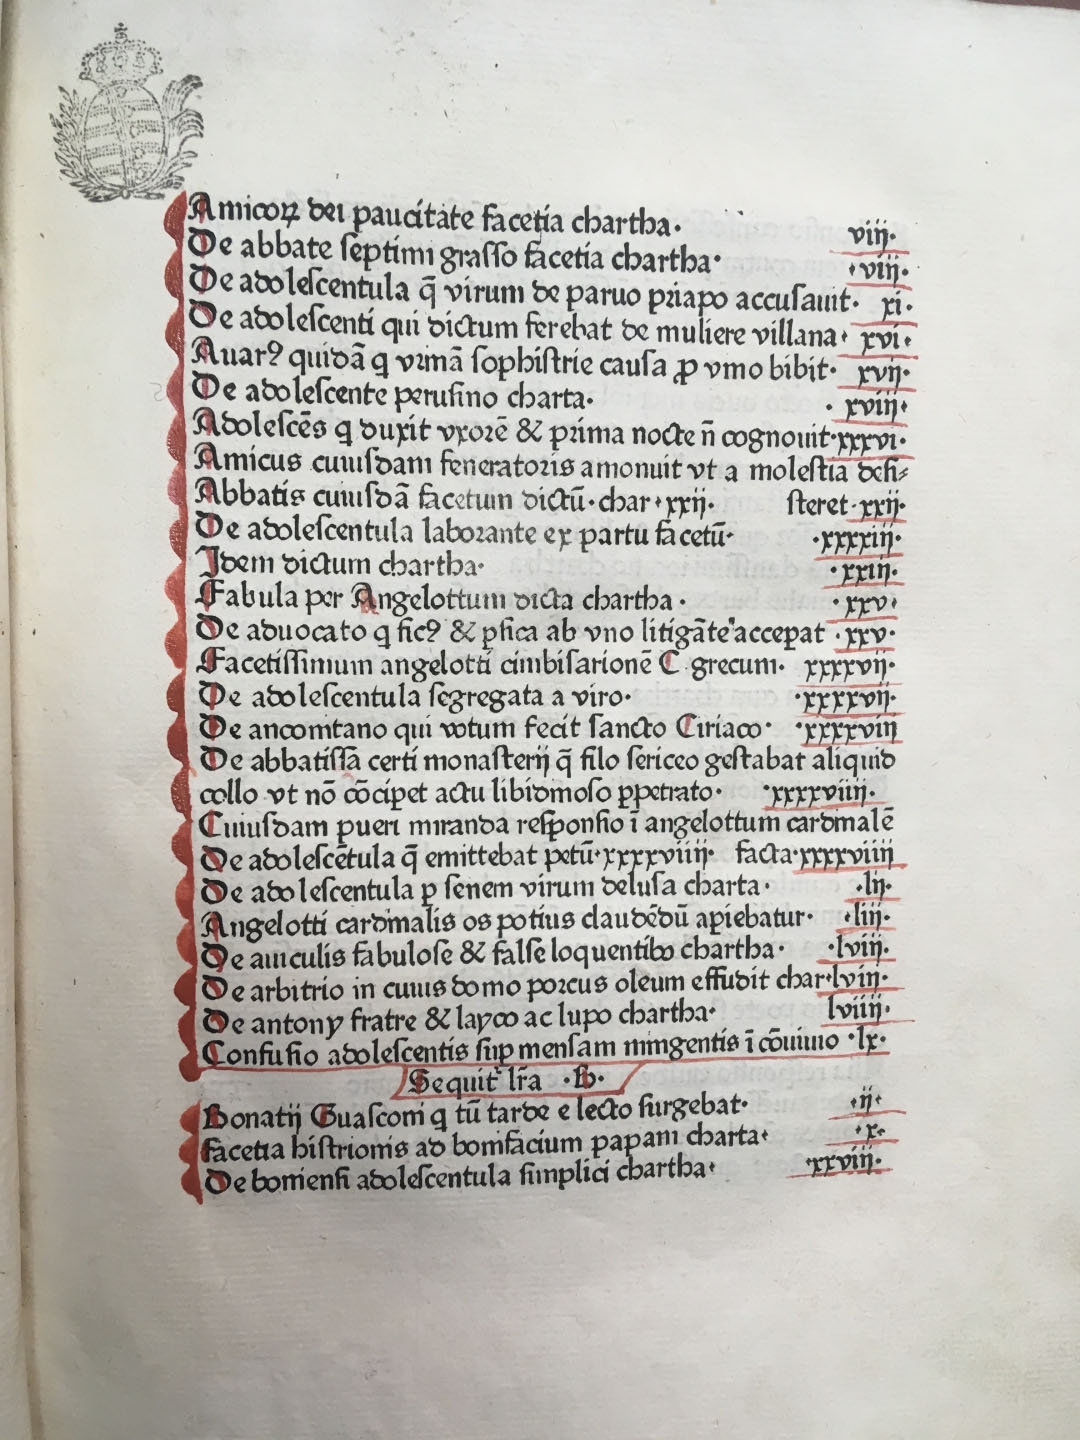 Amicoꝝ dei paucitate facetia chartha. viij.
De abbate septimi grasso facetia chartha· ·viij·
De adolescentula q̄ virum de paruo priapo accusauit· xi·
De adolescenti qui dictum ferebat de muliere villana· xvi·
Auarꝰ quidā q vrinā sophistrie causa ꝓ vino bibit· xvij·
De adolescente perusino charta· · xviij·
Adolescēs q duxit vxorē & prima nocte n̄ cognouit·xxxvi·
Amicus cuiusdam feneratoris amonuit vt a molestia desi⸗
Abbatis cuiusdā facetum dictū·char·xxij· steret·xxij·
De adolescentula laborante ex partu facetū· ·xxxxiij·
Idem dictum chartha· ·xxiij·
Fabula per Angelottum dicta chartha· ·xxv·
De aduocato q ficꝰ & ꝑsica ab vno litigāte accepat ·xxv·
Facetissimum angelotti cimbisarionē C grecum· xxxxvij·
De adolescentula segregata a viro· ·xxxxvij·
De anconitano qui votum fecit sancto Ciriaco· ·xxxxviij
De abbatissa certi monasterij q̄ filo sericeo gestabat aliquid
collo vt nō cōcipet actu libidinoso ꝑpetrato· ·xxxxviiij·
Cuiusdam pueri miranda responsio ī angelottum cardinalē
De adolescētula q̄ emittebat petū·xxxxviiij· facta·xxxxviiij
De adolescentula ꝑ senem virum delusa charta· ·lij·
Angelotti cardinalis os potius claudēdū apiebatur· ·liij·
De auiculis fabulose & false loquentibꝰ chartha· ·lviij·
De arbitrio in cuius domo porcus oleum effudit char·lviij·
De antony fratre & layco ac lupo chartha· lviiij·
Confusio adolescentis suꝑ mensam mingentis ī cōuiuio ·lx·
Sequit' lr̄a ·B·
Bonatij Guasconi q tū tarde e lecto surgebat· ·ij·
facetia histrionis ad bonifacium papam charta· ·x·
De boniensi adolescentula simplici chartha· ·xxviij·